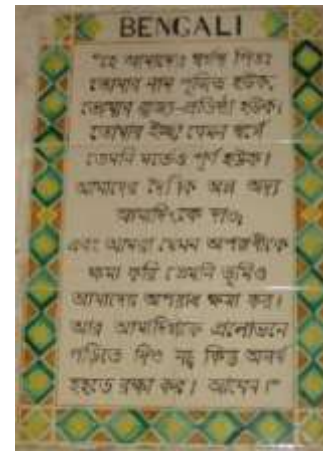 BENGALI
"হে আমাদের স্বর্গস্থ পিতঃ
তোমার নাম পূজিত হউক,
তোমার রাজ্য-প্রতিষ্ঠা হউক।
তোমার ইচ্ছা যেমন স্বর্গে
তেমনি মর্তেও পূর্ণ হউক।
আমাদের দৈনিক অন্ন অদ্য
আমাদিগকে দাও,
এবং আমরা যেমন অপরাধীকে
ক্ষমা করি তেমনি তুমিও
আমাদের অপরাধ ক্ষমা কর।
আর আমাদিগকে প্রলোভনে
পড়িতে দিও না, কিন্তু অনর্থ
হইতে রক্ষা কর। আমেন।"